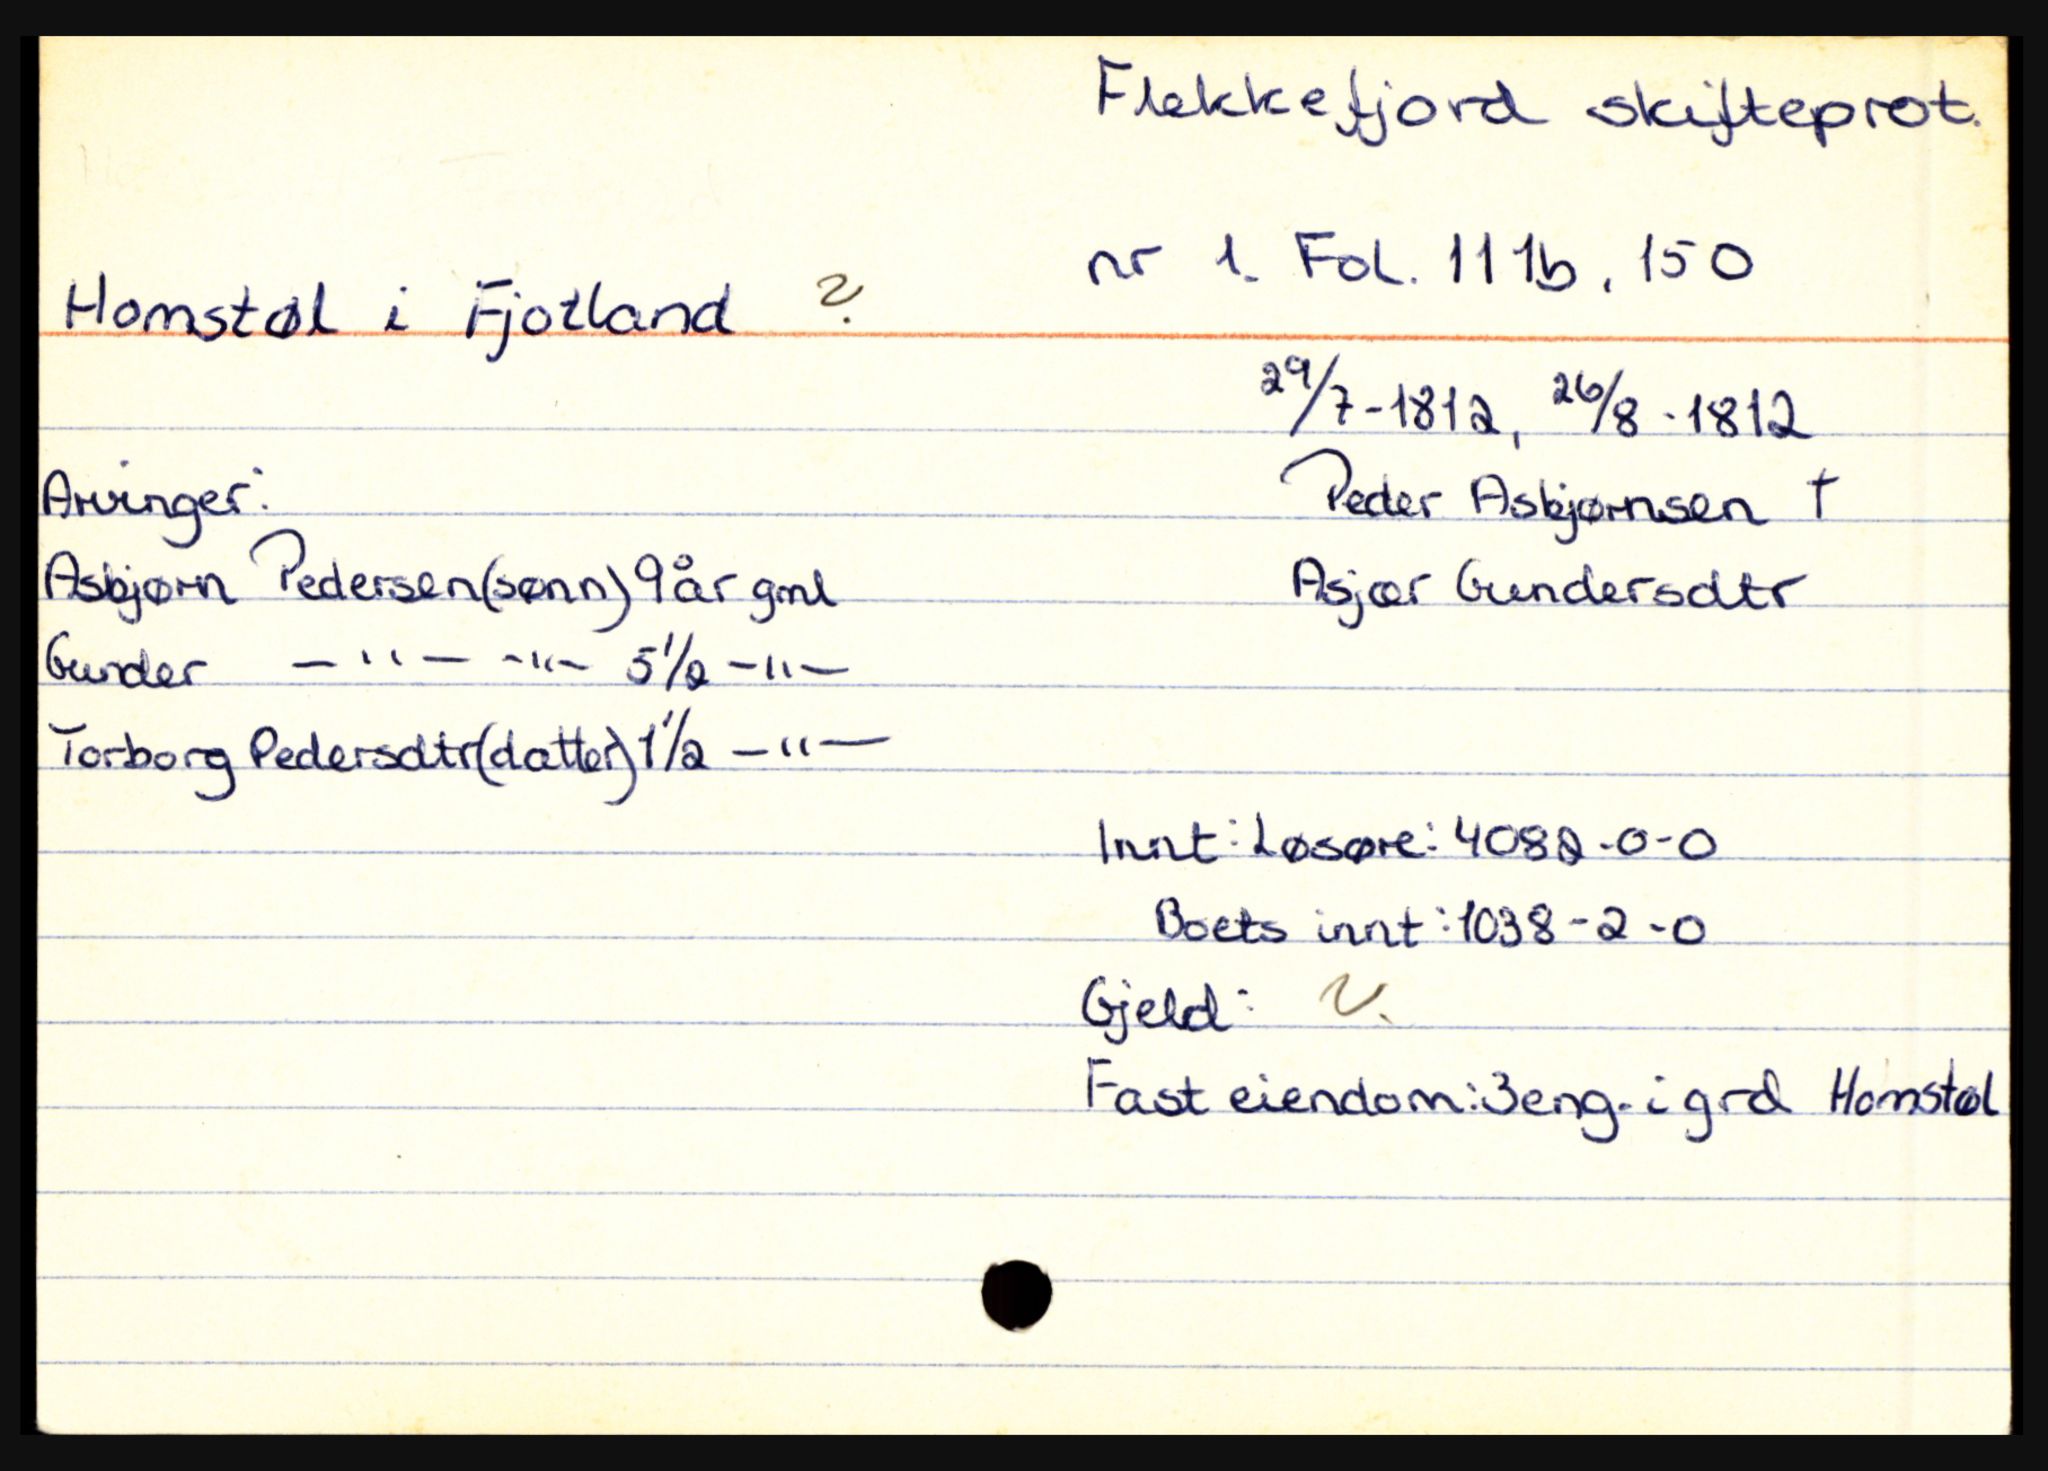 Flekkefjord skifteprot.
nr 1. Fol. 111b, 150
Homstøl i Fjotland ?
29/7-1812, 26/8-1812
Arvinger:
Peder Asbjørnsen †
Asbjørn Pedersen (sønn) 9 år gml
Asjær Gundersdtr
Gunder —"— -"- 5 1/2 -"-
Torborg Pedersdtr (datter) 1 1/2 -"-
Innt: Løsøre: 4082-0-0
Boets innt: 1038-2-0
Gjeld: ?
Fast eiendom: 3 eng. i grd Homstøl